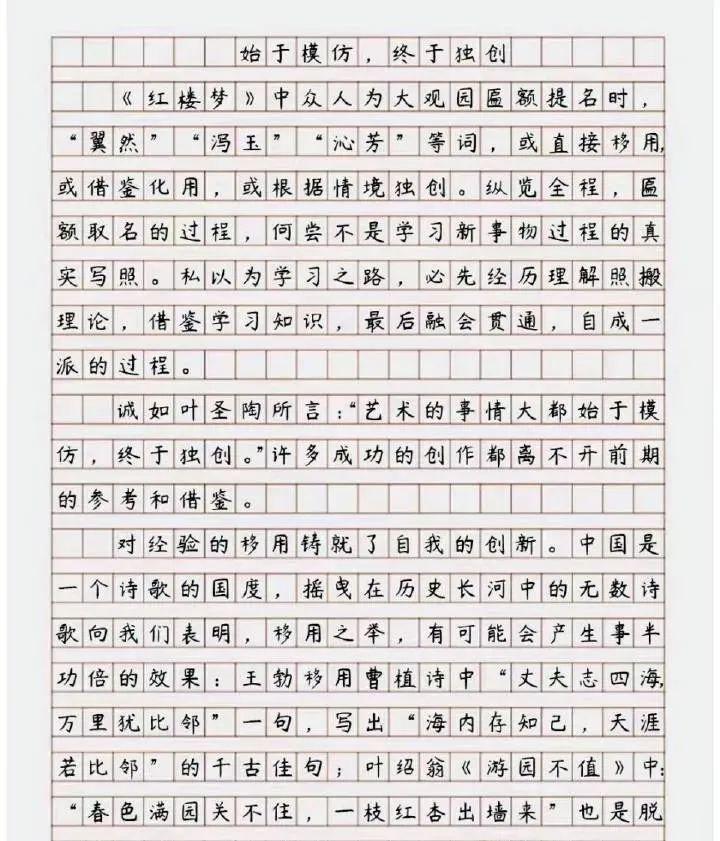 始于模仿，终于独创
《红楼梦》中众人为大观园匾额提名时，
“翼然”“泻玉”“沁芳”等词，或直接移用，
或借鉴化用，或根据情境独创。纵览全程，匾
额取名的过程，何尝不是学习新事物过程的真
实写照。私以为学习之路，必先经历理解照搬
理论，借鉴学习知识，最后融会贯通，自成一
派的过程。
诚如叶圣陶所言：“艺术的事情大都始于模
仿，终于独创。”许多成功的创作都离不开前期
的参考和借鉴。
对经验的移用铸就了自我的创新。中国是
一个诗歌的国度，摇曳在历史长河中的无数诗
歌向我们表明，移用之举，有可能会产生事半
功倍的效果：王勃移用曹植诗中“丈夫志四海，
万里犹比邻”一句，写出“海内存知己，天涯
若比邻”的千古佳句；叶绍翁《游园不值》中：
“春色满园关不住，一枝红杏出墙来”也是脱